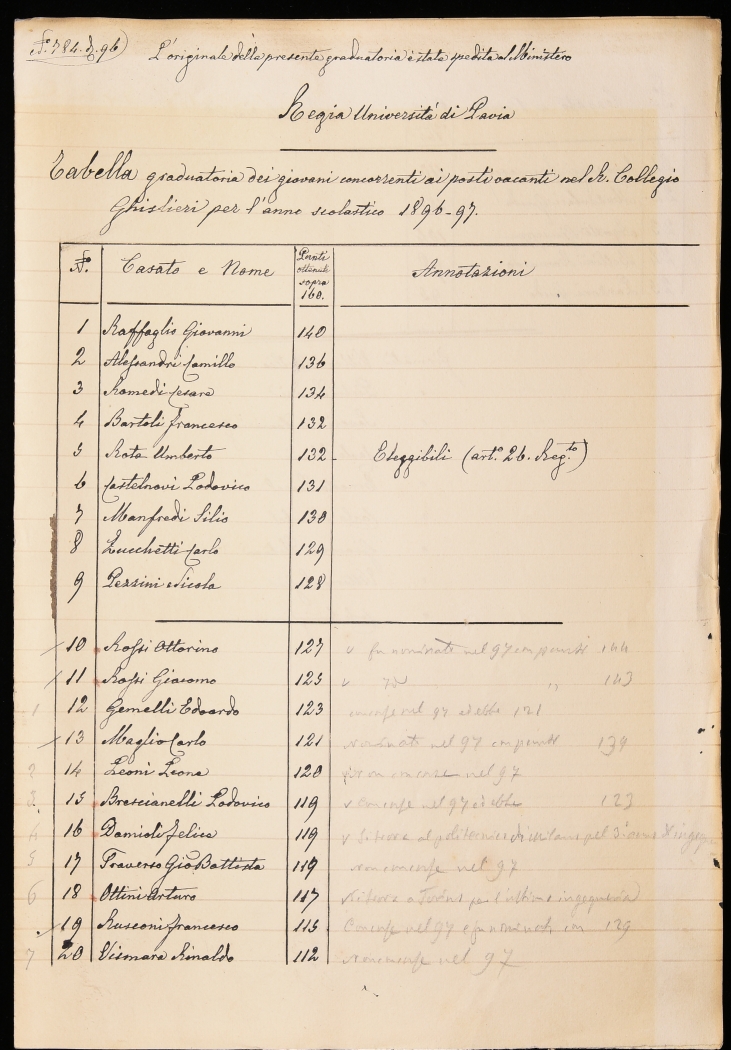 N.º 784. d. 96)
L'originale della presente graduatoria è stata spedita al Ministero
Regia Universitá di Pavia
Tabella graduatoria dei giovani concorrenti ai posti vacanti nel R. Collegio
Ghislieri per l'anno scolastico 1896-97.
N.º Casato e Nome Punti ottenuti sopra 160. Annotazioni
1 Raffaglio Giovanni 140
2 Alessandri Camillo 136
3 Romedi Cesare 134
4 Bartoli Francesco 132
5 Rota Umberto 132 - Eleggibili (art.º 26. Reg.to)
6 Castelnovi Lodovico 131
7 Manfredi Silio 130
8 Zucchetti Carlo 129
9 Pezzini Nicola 128
10 Rossi Ottorino 127 v fu nominato nel 97 con punti 144
11 Rossi Giacomo 125 v id " 143
1 12 Gemelli Edoardo 123 concorse nel 97 ed ebbe 121
13 Maglio Carlo 121 nominato nel 97 con punti 139
2 14 Leoni Leone 120 non concorse nel 97
3 15 Brescianelli Lodovico 119 v concorse nel 97 ed ebbe 123
4 16 Damioli Felice 119 v al politecnico di Milano pel 3º anno
5 17 Traverso Gio Battista 119 non concorse nel 97
6 18 Ottini Arturo 117 a Torino per l'ultimo ingegneria
19 Rusconi Francesco 115 Concorse nel 97 e fu nominato con 129
7 20 Vismara Rinaldo 112 non concorse nel 97